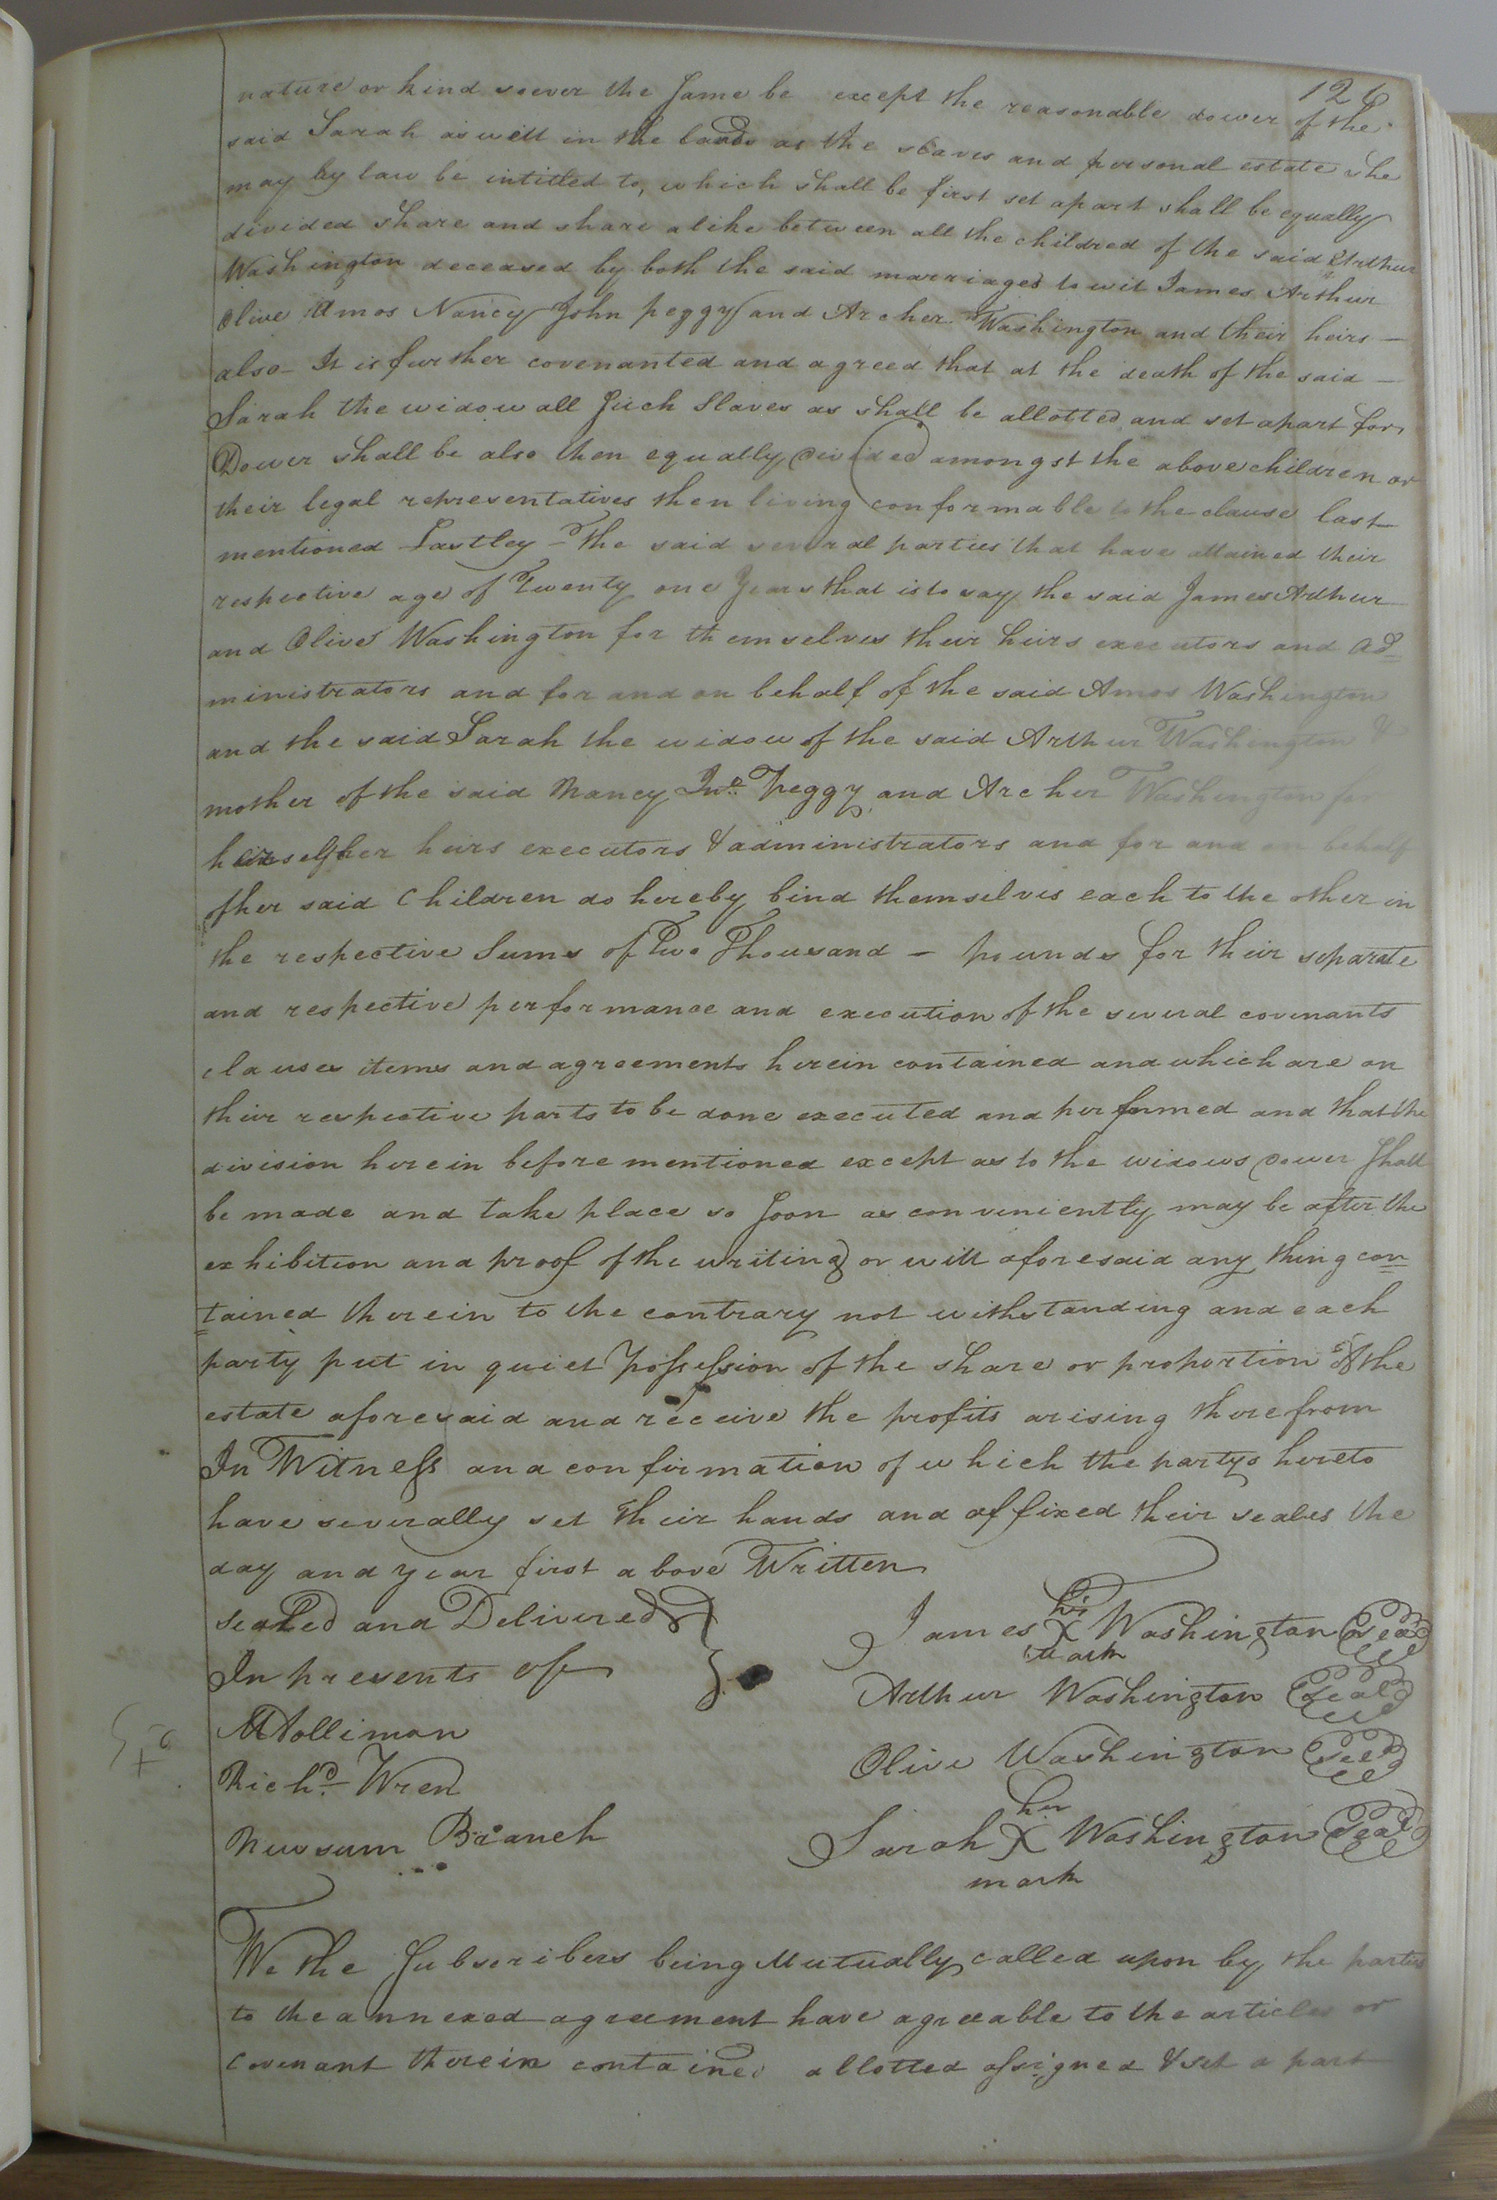 126
nature or kind soever the same be except the reasonable dower of the
said Sarah as well in the lands as the slaves and personal estate she
may by law be intitled to, which shall be first set apart shall be equally
divided share and share alike between all the childred of the said Arthur
Washington deceased by both the said marriages to wit James Arthur
Olive Amos Nancy John peggy and Archer Washington and their heirs —
also — It is further covenanted and agreed that at the death of the said —
Sarah the widow all such slaves as shall be allotted and set apart for
Dower shall be also then equally divided amongst the above children or
their legal representatives then living conformable to the clause last
mentioned Lastley — The said several parties that have attained their
respective age of Twenty one years that is to say the said James Arthur
and Olive Washington for themselves their heirs executors and ad=
ministrators and for and on behalf of the said Amos Washington
and the said Sarah the widow of the said Arthur Washington &
mother of the said Nancy Jno. Peggy and Archer Washington for
herself her heirs executors & administrators and for and on behalf
of her said Children do hereby bind themselves each to the other in
the respective sums of Two Thousand — pounds for their separate
and respective performance and execution of the several covenants
clauses items and agreements herein contained and which are on
their respective parts to be done executed and performed and that the
division herein before mentioned except as to the widows dower shall
be made and take place so soon as conveniently may be after the
exhibition and proof of the writing or will aforesaid any thing con=
=tained therein to the contrary not withstanding and each
party put in quiet possession of the share or proportion of the
estate aforesaid and receive the profits arising therefrom
In Witness and confirmation of which the partys hereto
have severally set their hands and affixed their seales the
day and year first above Written
sealed and Delivered }
In presents of }
James his X mark Washington (seal)
Arthur Washington (seal)
Holliman
Olive Washington (seal)
Richd. Wren
Sarah her X mark Washington (seal)
Newsum Branch
We the Subscribers being Mutually called upon by the parties
to the annexed agreement have agreeable to the articles or
covenant therein contained allotted assigned & set a part